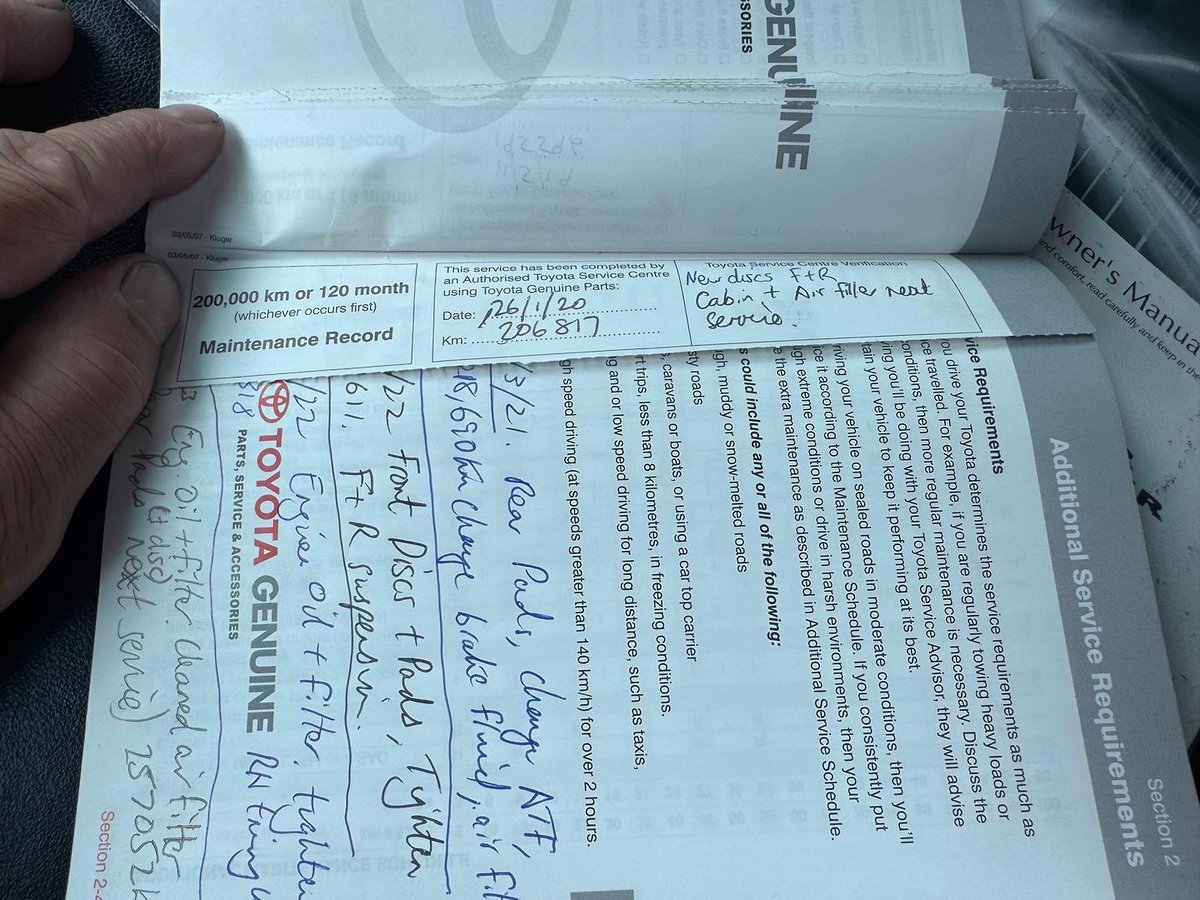 GENUINE
SSORIES
03/05/07 - Kluger
03/05/07 - Kluger
200,000 km or 120 month
(whichever occurs first)
Maintenance Record
This service has been completed by
an Authorised Toyota Service Centre
using Toyota Genuine Parts:
Date: 26/1/20
Km: 206817
Toyota Service Centre Verification
New discs F+R
Cabin + Air filter next
service.
wner's Manua
and comfort, read carefully and keep in the
Section 2
Additional Service Requirements
vice Requirements
ou drive your Toyota determines the service requirements as much as
ce travelled. For example, if you are regularly towing heavy loads or
onditions, then more regular maintenance is necessary. Discuss the
ing you'll be doing with your Toyota Service Advisor, they will advise
tain your vehicle to keep it performing at its best.
riving your vehicle on sealed roads in moderate conditions, then you'll
ice it according to the Maintenance Schedule. If you consistently put
gh extreme conditions or drive in harsh environments, then your
e the extra maintenance as described in Additional Service Schedule.
s could include any or all of the following:
gh, muddy or snow-melted roads
sty roads
, caravans or boats, or using a car top carrier
rt trips, less than 8 kilometres, in freezing conditions.
g and or low speed driving for long distance, such as taxis,
gh speed driving (at speeds greater than 140 km/h) for over 2 hours.
/3/21. Rear Pads, change ATF,
218,690km change brake fluid, air fil
/22 Front Discs + Pads, Tighten
611. F+R suspension.
/22 Engine Oil + filter. tighten
818 TOYOTA GENUINE RH
PARTS, SERVICE & ACCESSORIES
3 Eng. Oil + filter. Cleaned air filter
Pads & disc next service) 257052k
Section 2-